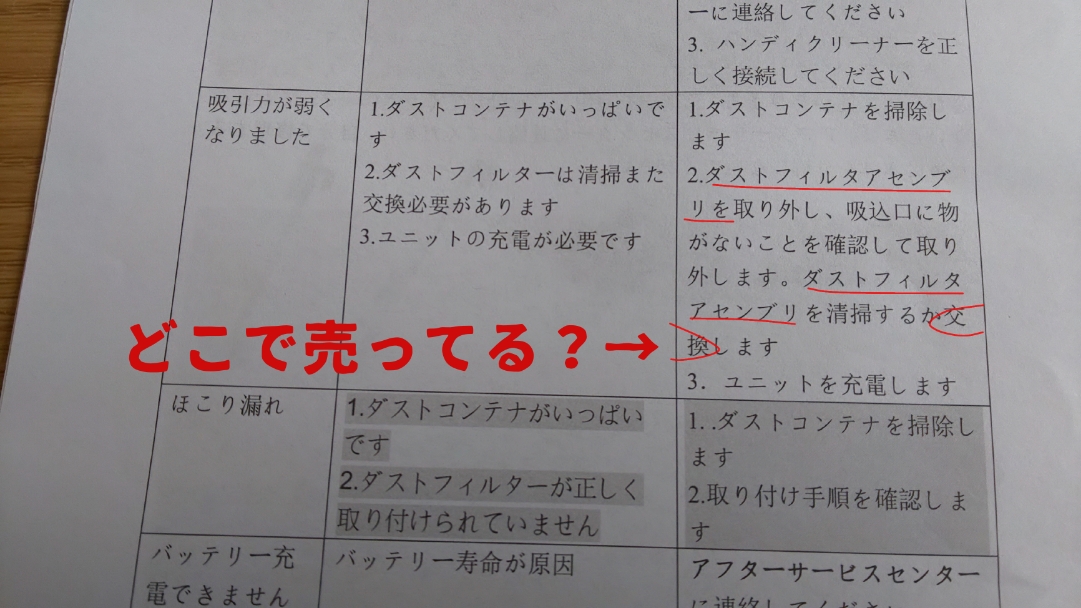 ーに連絡してください
3. ハンディクリーナーを正
しく接続してください
吸引力が弱く
なりました
1.ダストコンテナがいっぱいで
す
2.ダストフィルターは清掃また
交換必要があります
3.ユニットの充電が必要です
1.ダストコンテナを掃除し
ます
2.ダストフィルタアセンブ
リを取り外し、吸込口に物
がないことを確認して取り
外します。ダストフィルタ
アセンブリを清掃するか交
換します
3. ユニットを充電します
どこで売ってる？→
ほこり漏れ
1.ダストコンテナがいっぱい
です
2.ダストフィルターが正しく
取り付けられていません
1. .ダストコンテナを掃除し
ます
2.取り付け手順を確認しま
す
バッテリー充
電できません
バッテリー寿命が原因
アフターサービスセンター
に連絡してください